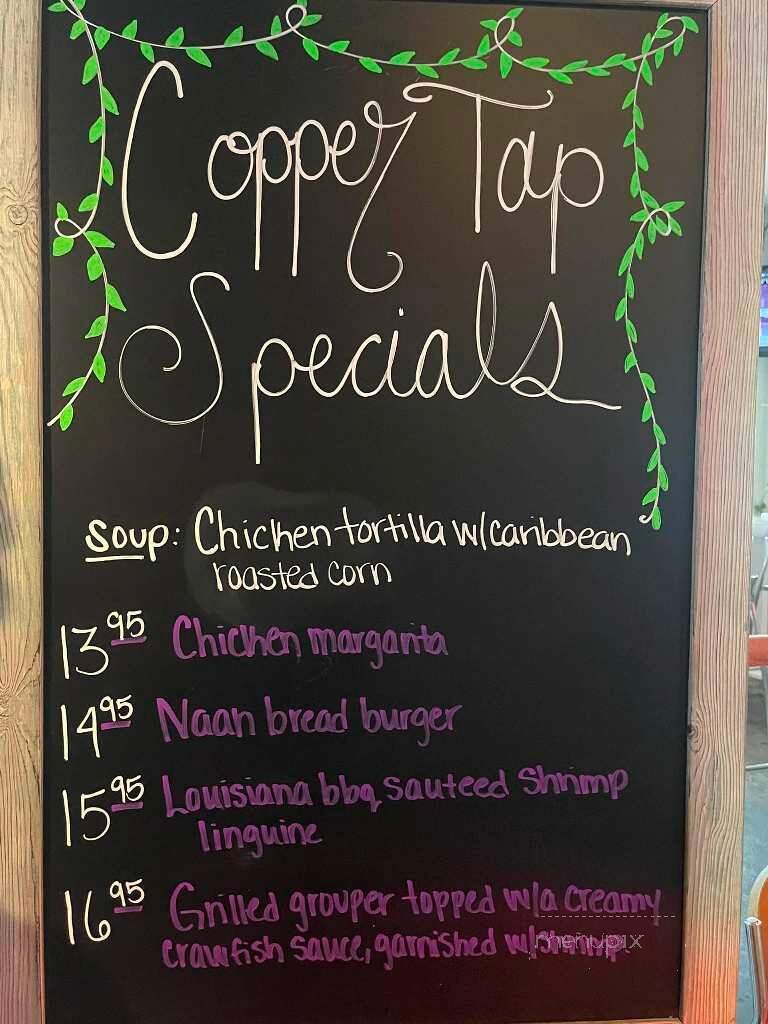 Copper Tap
Specials
Soup: Chicken tortilla w/caribbean
roasted corn
13 95 Chicken margarita
14 95 Naan bread burger
15 95 Louisiana bbq sauteed Shrimp
linguine
16 95 Grilled grouper topped w/a creamy
crawfish sauce, garnished w/shrimp
menupix